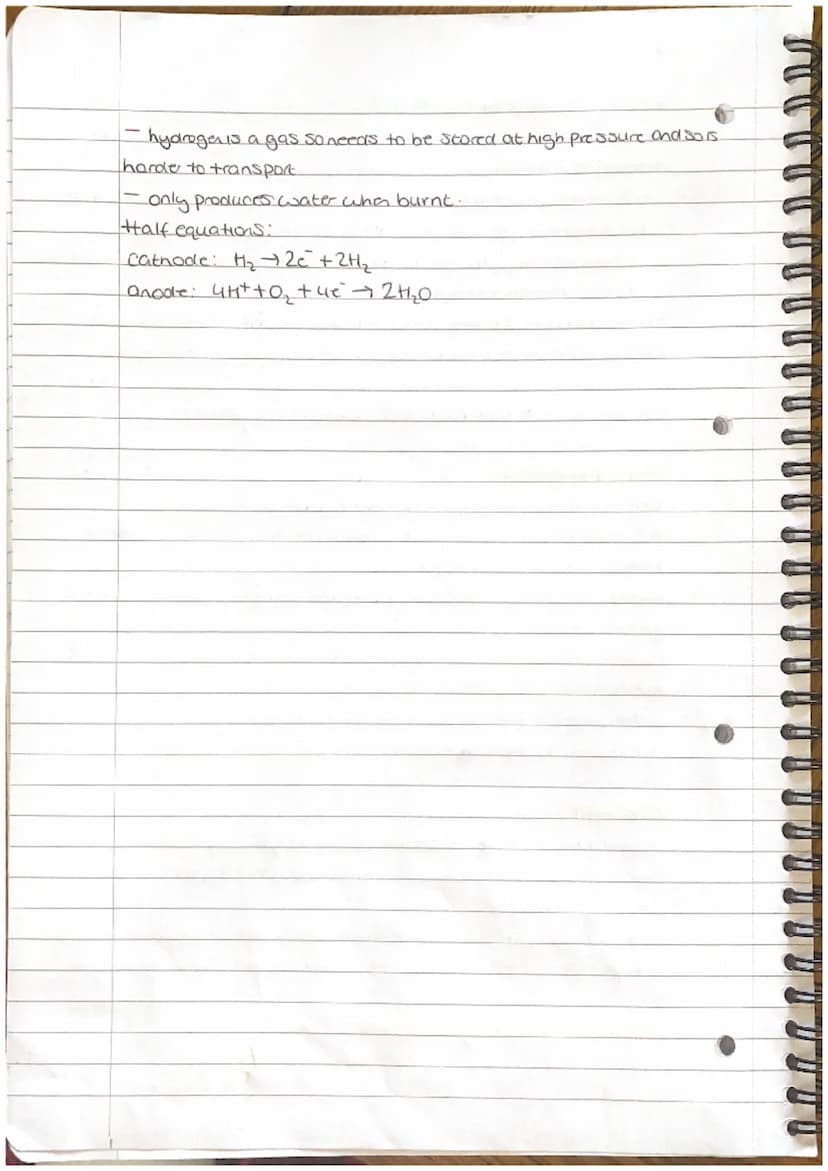 - hydrogen is a gas so needs to be stored at high pressure and so is
harder to transport
- only produces water when burnt.
Half equations:
Cathode: H₂ → 2e⁻ + 2H₂
anode: 4H⁺ + O₂ + 4e⁻ → 2H₂O